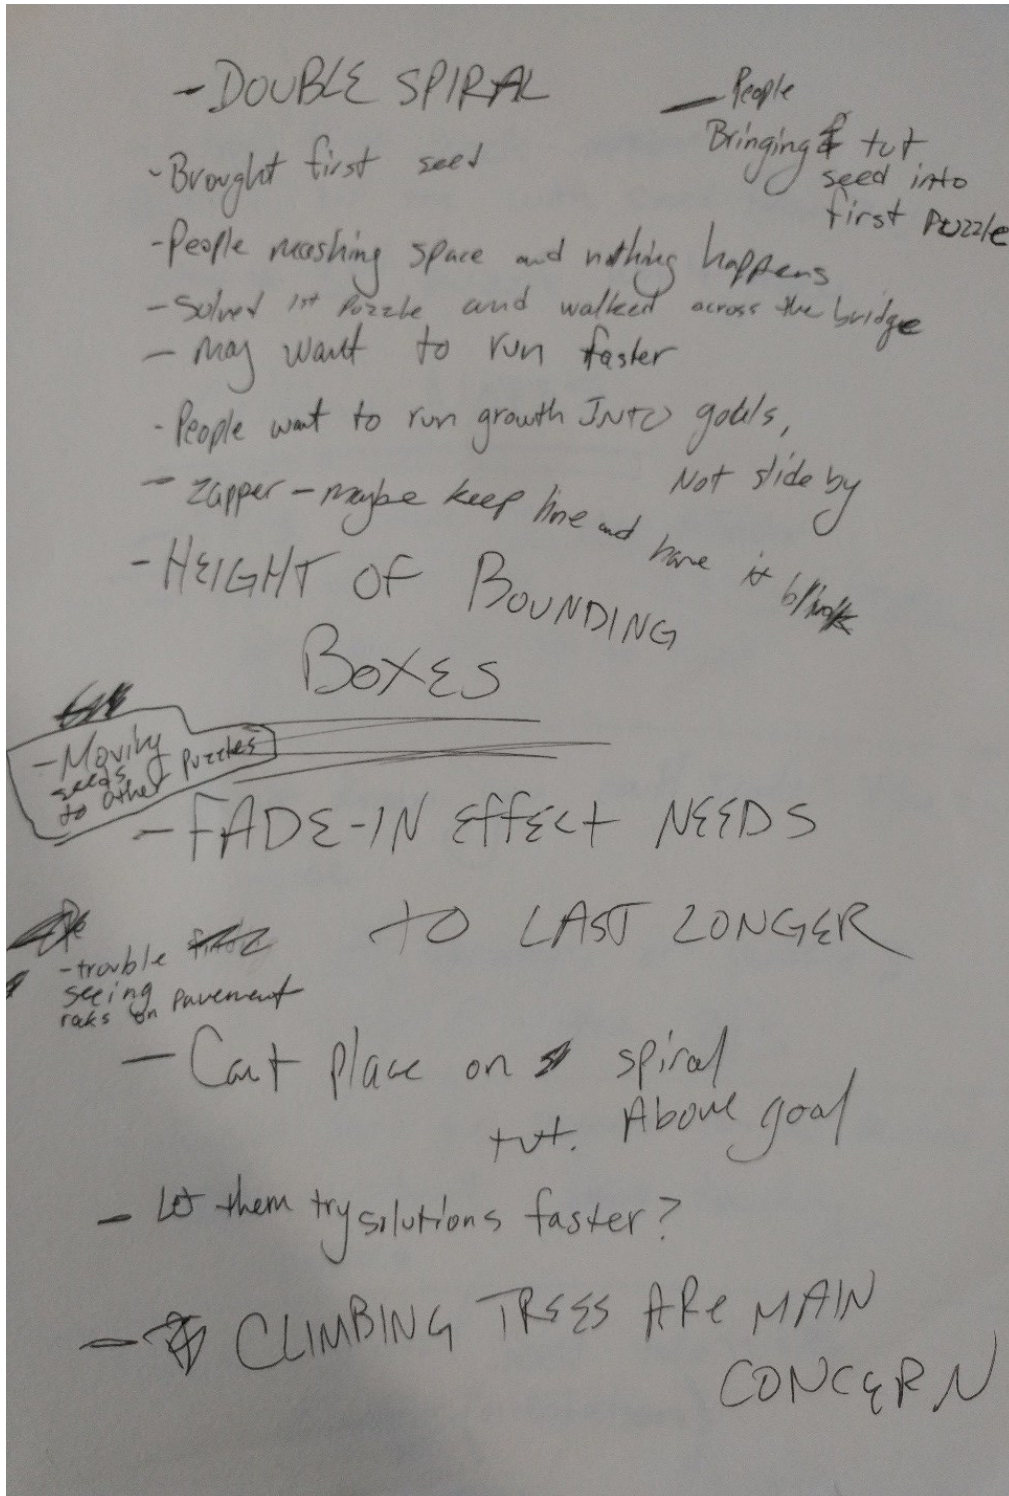 - DOUBLE SPIRAL
- People
Bringing tut
seed into
first Puzzle
- Brought first seed
- People mashing space and nothing happens
- Solved 1st Puzzle and walked across the bridge
- May want to run faster
- People want to run growth INTO goals,
Not slide by
- Zapper - maybe keep line and have it blink
- HEIGHT OF BOUNDING
BOXES
- Moving
seeds
to other puzzles
- FADE-IN EFFECT NEEDS
TO LAST LONGER
- trouble
seeing
raks on pavement
- Cant place on spiral
tut. Above goal
- Let them try solutions faster?
- CLIMBING TREES ARE MAIN
CONCERN